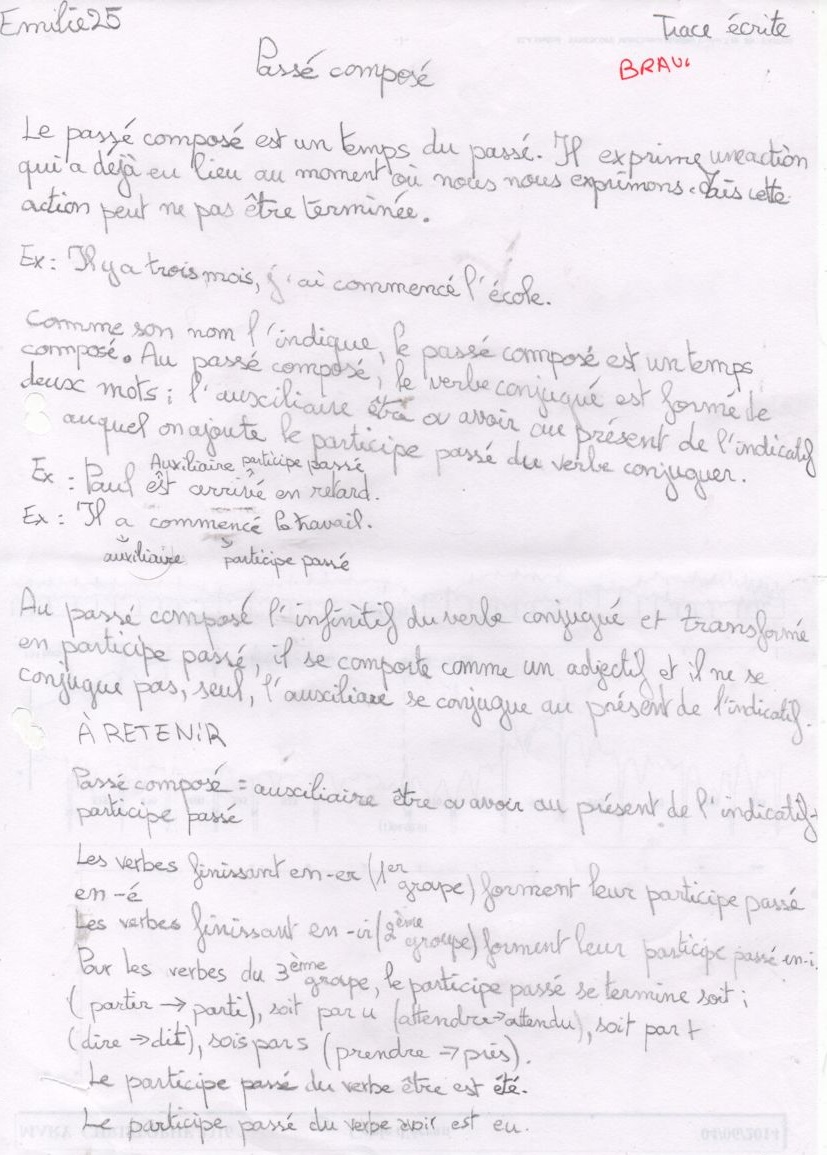 Emilie25
Trace écrite
Passé composé
BRAVO
Le passé composé est un temps du passé. Il exprime une action
qui a déjà eu lieu au moment où nous nous exprimons. Mais cette
action peut ne pas être terminée.
Ex : Il y a trois mois, j'ai commencé l'école.
Comme son nom l'indique, le passé composé est un temps
composé. Au passé composé, le verbe conjugué est formé de
deux mots : l'auxiliaire être ou avoir au présent de l'indicatif
auquel on ajoute le participe passé du verbe conjuguer.
Auxiliaire participe passé
Ex : Paul est arrivé en retard.
Ex : Il a commencé le travail.
auxiliaire participe passé
Au passé composé l'infinitif du verbe conjugué et transformé
en participe passé, il se comporte comme un adjectif et il ne se
conjugue pas, seul, l'auxiliare se conjugue au présent de l'indicatif.
À RETENIR
Passé composé = auxiliaire être ou avoir au présent de l'indicatif +
participe passé
Les verbes finissant en -er (1er groupe) forment leur participe passé
en -é
Les verbes finissant en -ir (2ème groupe) forment leur participe passé en -i.
Pour les verbes du 3ème groupe, le participe passé se termine soit i
(partir → parti), soit par u (attendre → attendu), soit par t
(dire → dit), sois par s (prendre → pris).
Le participe passé du verbe être est été.
Le participe passé du verbe avoir est eu.